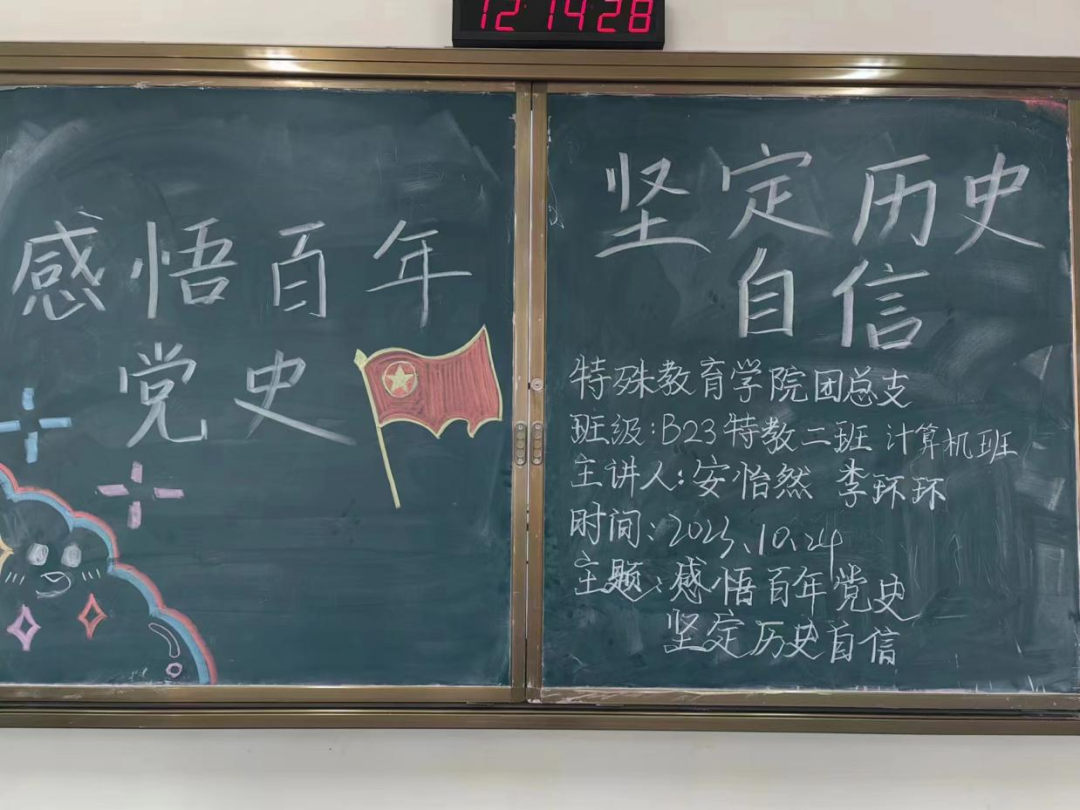 12:14:28
感悟百年
党史
坚定历史
自信
特殊教育学院团总支
班级:B23特教二班 计算机班
主讲人:安怡然 李环环
时间:2023、10、24
主题:感悟百年党史
坚定历史自信